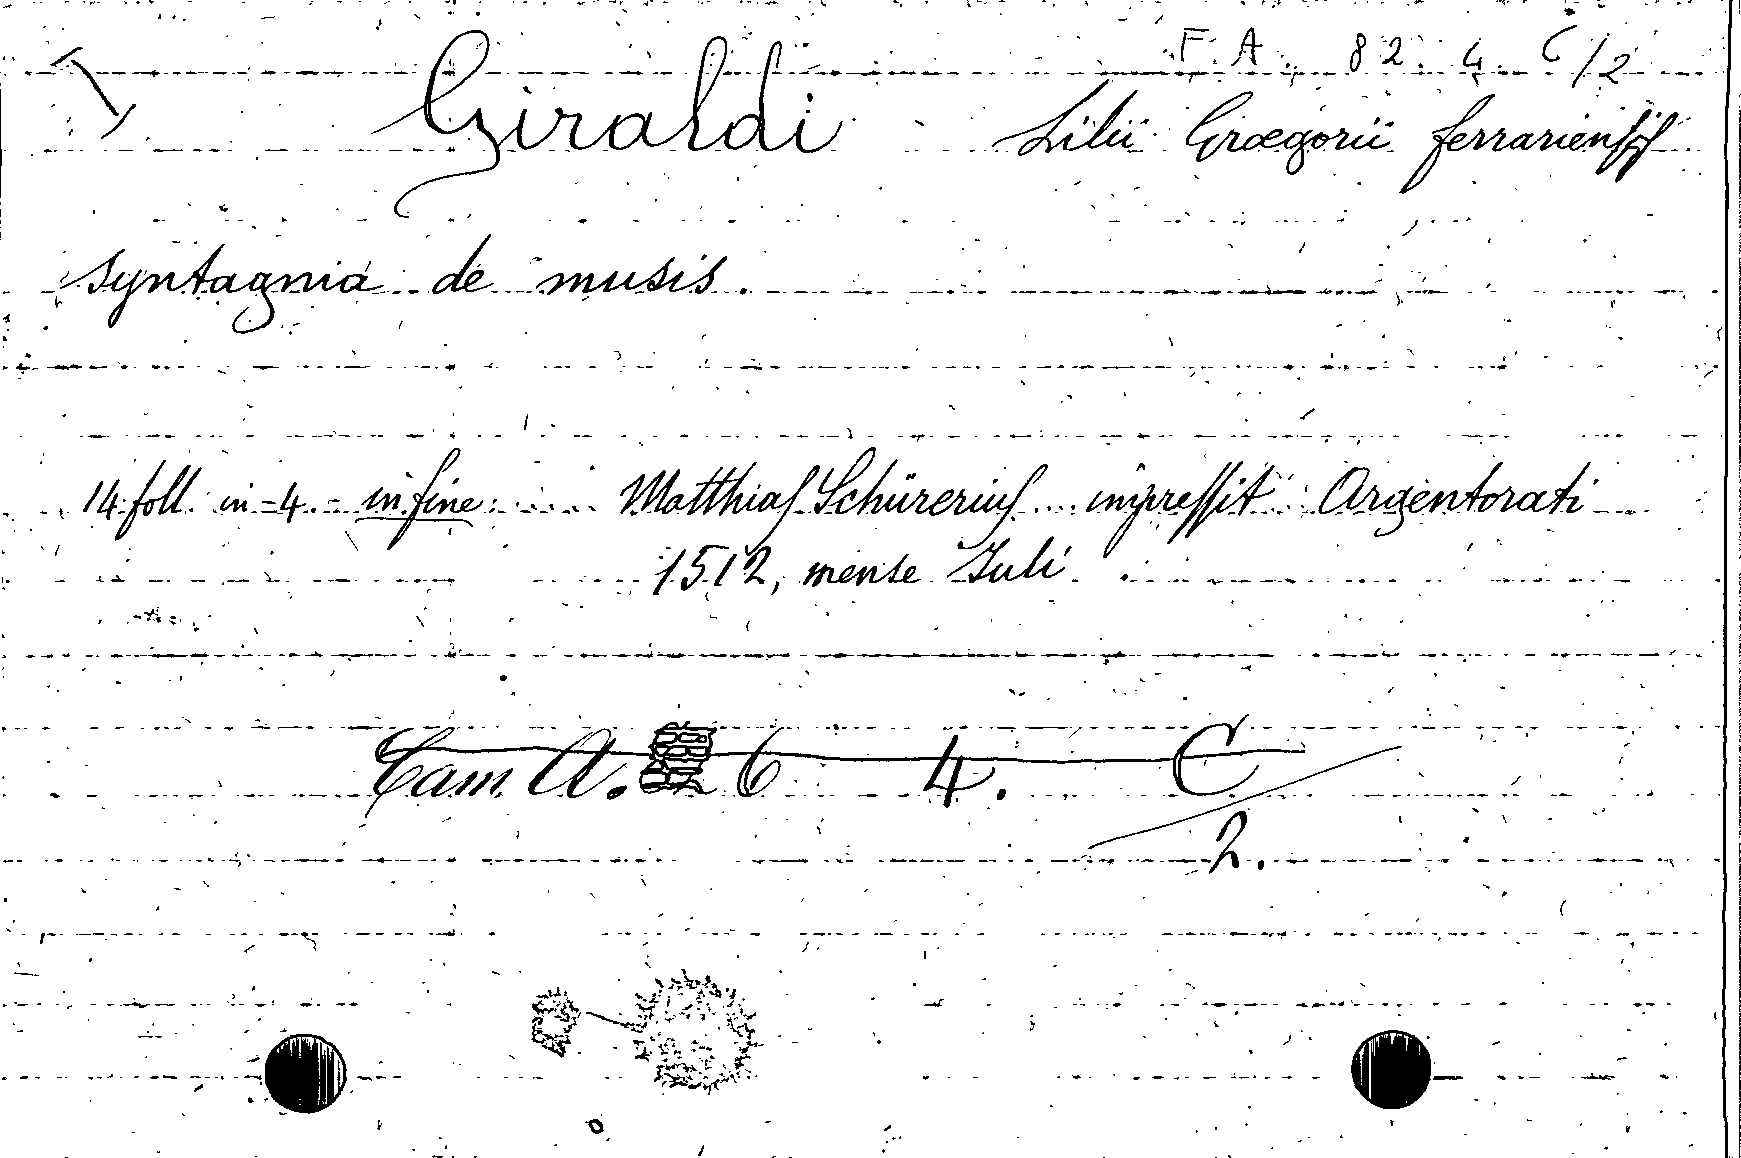 F. A. 82. 4. C/2
Giraldi Lilii Graegorii ferrariensis
syntagma de musis.
14 foll. in-4. - in fine: .... Matthias Schürerius .... impressit Argentorati
1512, mense Juli
Cam A. 6 4. C
2.